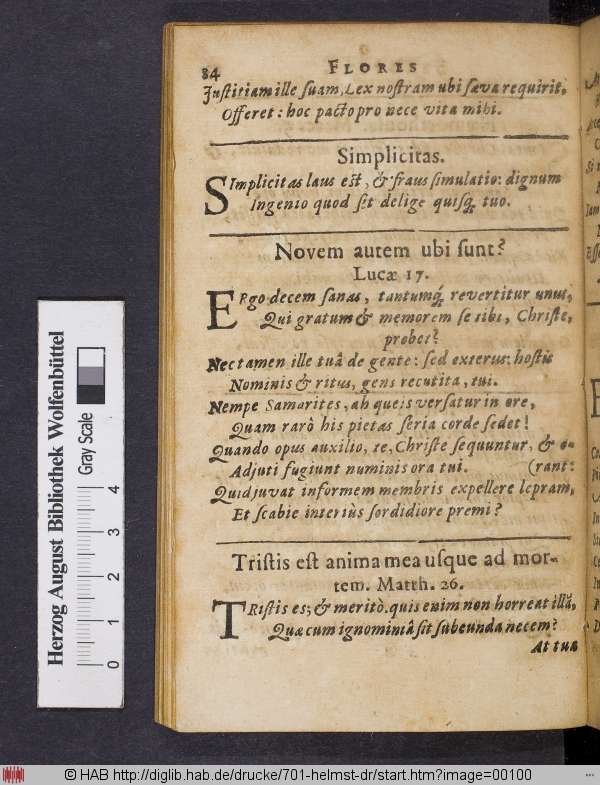 84 FLORES
Juſtitiam ille ſuam, Lex noſtram ubi ſæva requirit,
Offeret: hoc pacto pro nece vita mihi.
Simplicitas.
SImplicitas laus eſt, & fraus ſimulatio: dignum
Ingenio quod ſit delige quiſq; tuo.
Novem autem ubi ſunt?
Lucæ 17.
ERgo decem ſanas, tantumq; revertitur unus,
Qui gratum & memorem ſe tibi, Chriſte,
probet?
Nec tamen ille tuâ de gente: ſed exterus, hoſtis
Nominis & ritus, gens recutita, tui.
Nempe Samarites, ah queis verſatur in ore,
Quam rarò his pietas ſeria corde ſedet!
Quando opus auxilio, te, Chriſte ſequuntur, & o-
Adjuti fugiunt numinis ora tui. (rant:
Quid juvat informem membris expellere lepram,
Et ſcabie interiùs ſordidiore premi?
Triſtis eſt anima mea uſque ad mor-
tem. Matth. 26.
TRiſtis es; & meritò. quis enim non horreat illã,
Quæ cum ignominiâ ſit ſubeunda necem?
At tua
Herzog August Bibliothek Wolfenbüttel
Gray Scale
0 1 2 3 4
© HAB http://diglib.hab.de/drucke/701-helmst-dr/start.htm?image=00100